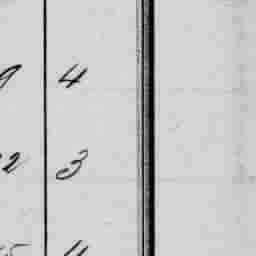 9 4
2 3
5 4